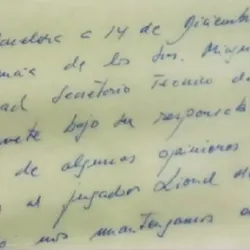 Barcelona a 14 de Diciembre
de los Srs. Minguella
Secretario Tecnico del
bajo su responsabilidad
de algunas opiniones
al jugador Lionel
nos mantengamos en